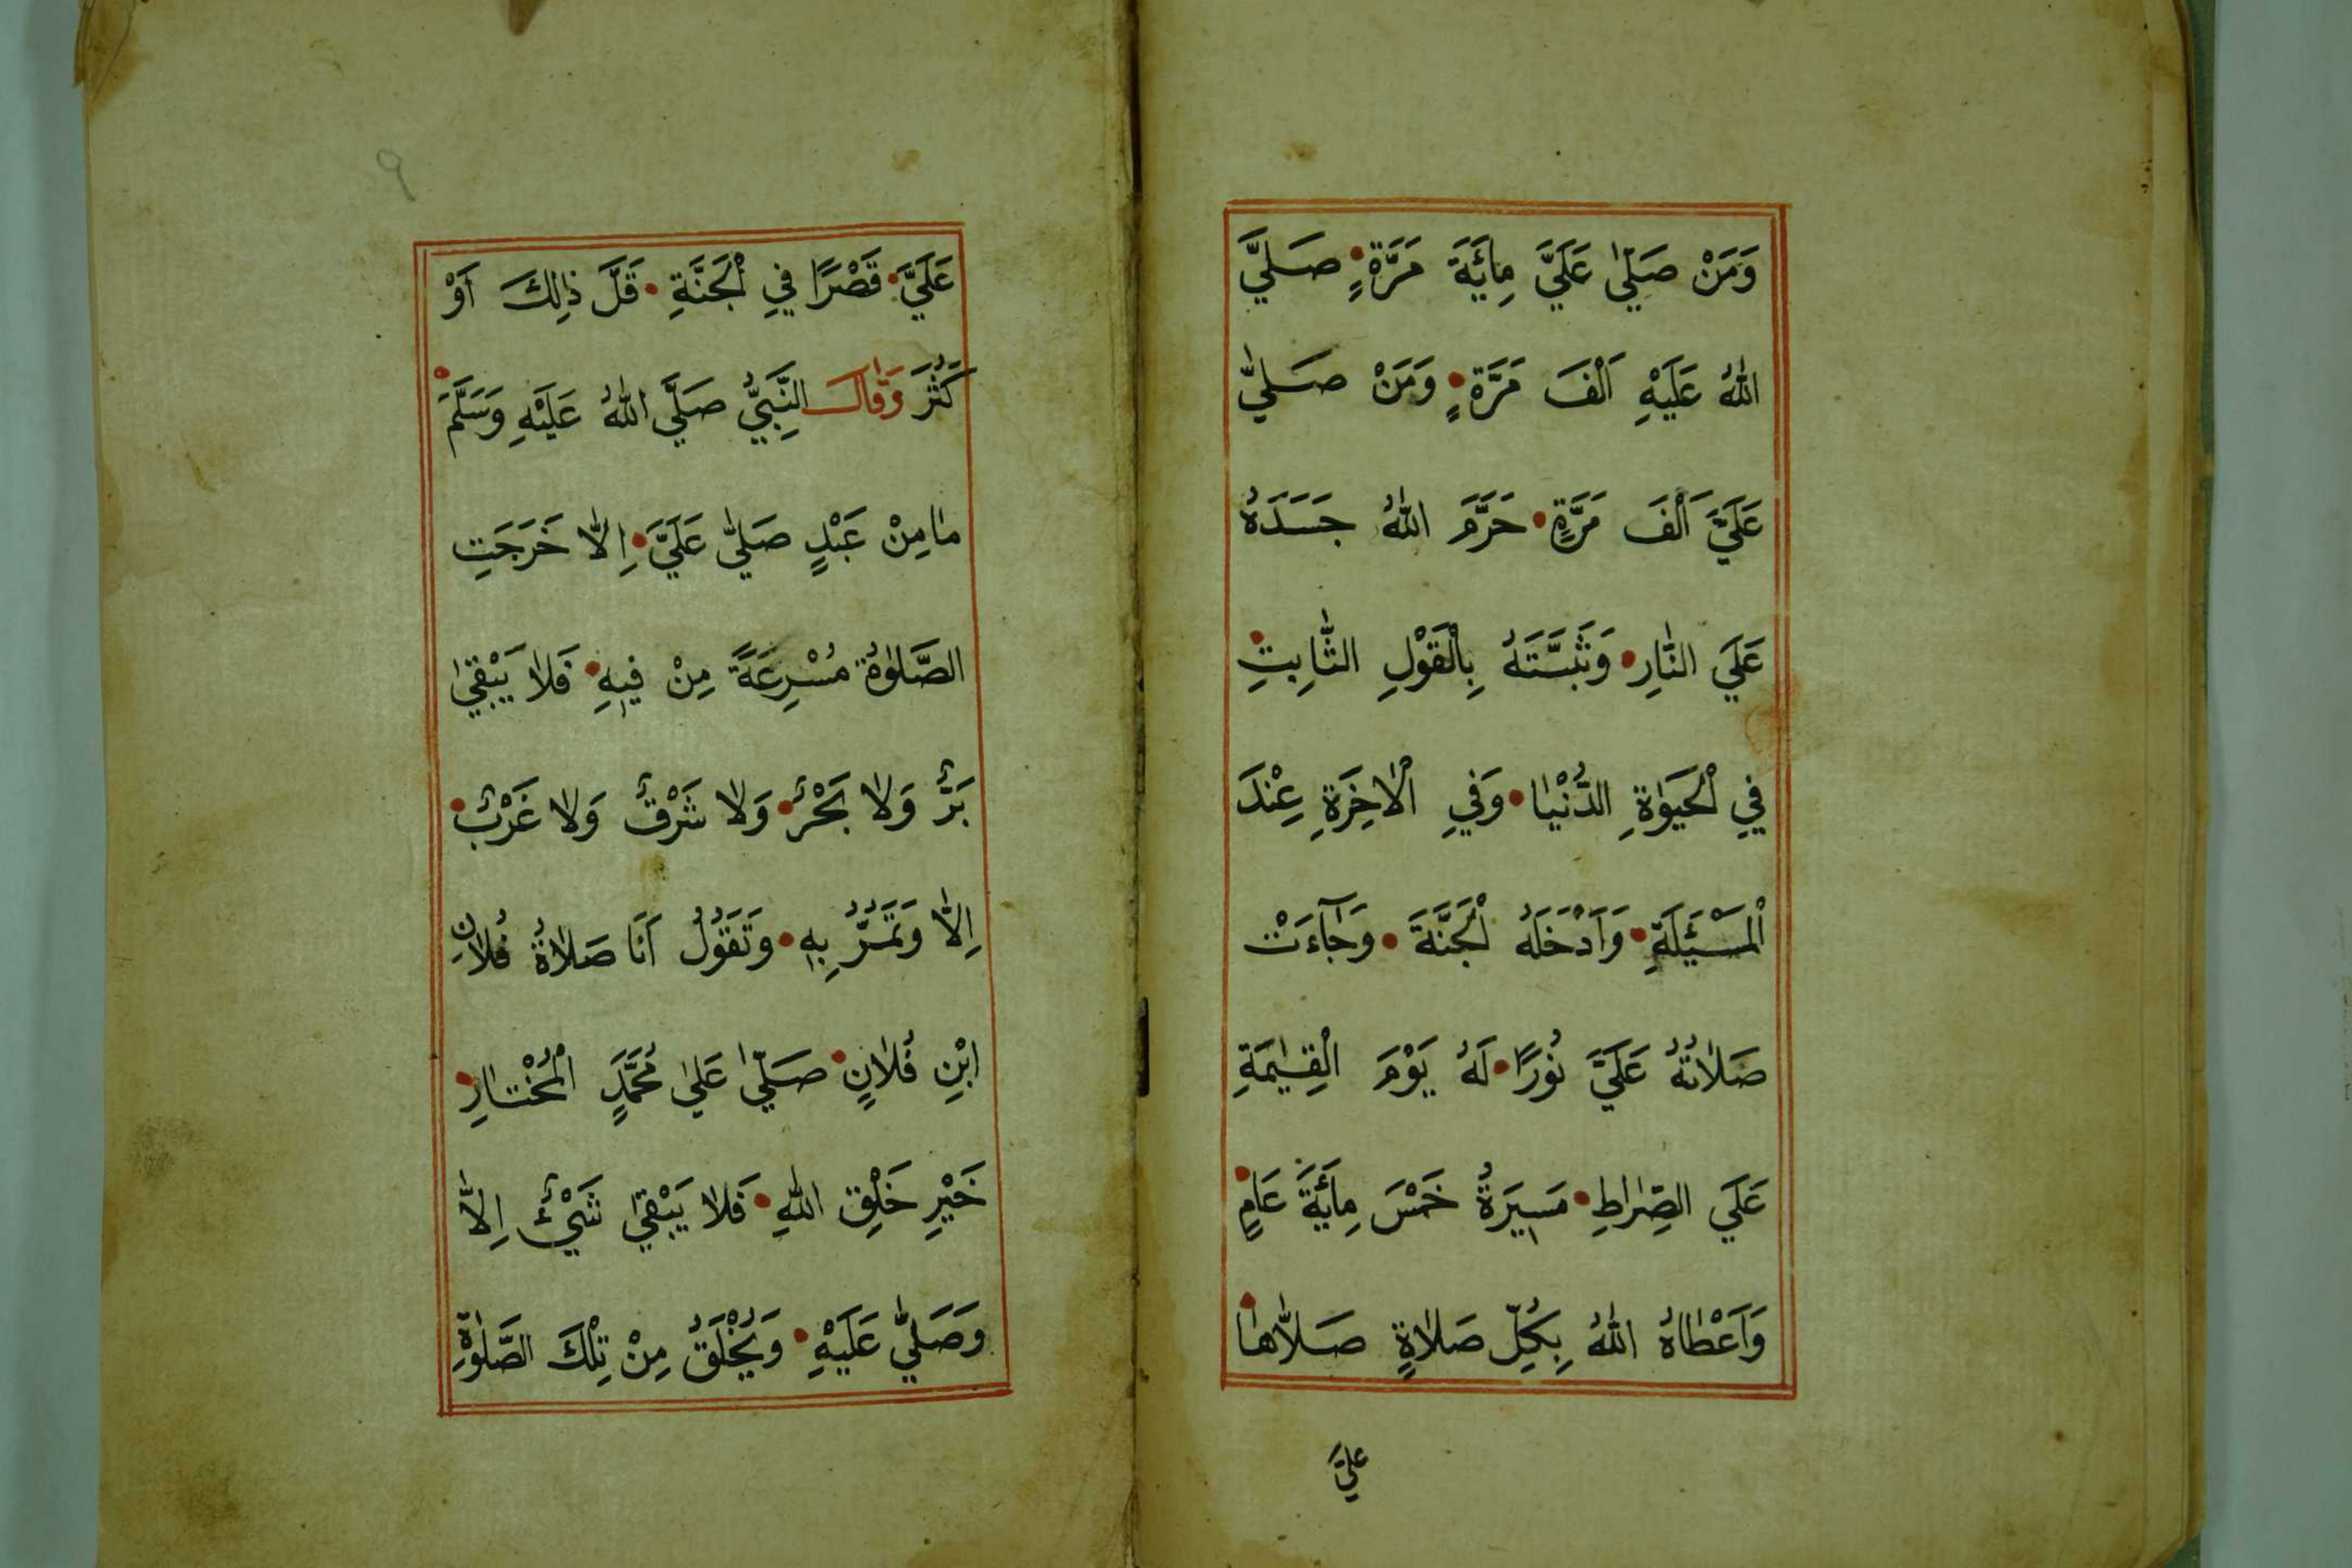 وَمَنْ صَلّٰى عَلَيَّ مِائَةَ مَرَّةٍ صَلَّي
اللهُ عَلَيْهِ اَلْفَ مَرَّةٍ وَمَنْ صَلّٰي
عَلَيَّ اَلْفَ مَرَّةٍ حَرَّمَ اللهُ جَسَدَهُ
عَلَي النَّارِ وَثَبَّتَهُ بِالْقَوْلِ الثَّابِتِ
فِي الْحَيَوٰةِ الدُّنْيَا وَفِي الْاٰخِرَةِ عِنْدَ
الْمَسْئَلَةِ وَاَدْخَلَهُ الْجَنَّةَ وَجَآءَتْ
صَلَاتُهُ عَلَيَّ نُورًا لَهُ يَوْمَ الْقِيٰمَةِ
عَلَي الصِّرَاطِ مَسِيرَةُ خَمْسَ مِائَةَ عَامٍ
وَاَعْطَاهُ اللهُ بِكُلِّ صَلَاةٍ صَلَّاهَا
عَلَيَّ
٩
عَلَيَّ قَصْرًا فِي الْجَنَّةِ قَلَّ ذٰلِكَ اَوْ
كَثُرَ وَقَالَ النَّبِيُّ صَلَّي اللهُ عَلَيْهِ وَسَلَّمَ
مَا مِنْ عَبْدٍ صَلّٰي عَلَيَّ اِلَّا خَرَجَتِ
الصَّلٰوةُ مُسْرِعَةً مِنْ فِيهِ فَلَا يَبْقٰي
بَرٌّ وَلَا بَحْرٌ وَلَا شَرْقٌ وَلَا غَرْبٌ
اِلَّا وَتَمُرُّ بِهِ وَتَقُوُلُ اَنَا صَلَاةُ فُلَانِ
ابْنِ فُلَانٍ صَلّٰي عَلٰي مُحَمَّدٍ الْمُخْتَارِ
خَيْرِ خَلْقِ اللهِ فَلَا يَبْقٰي شَيْءٌ اِلَّا
وَصَلّٰي عَلَيْهِ وَيُخْلَقُ مِنْ تِلْكَ الصَّلٰوةِ